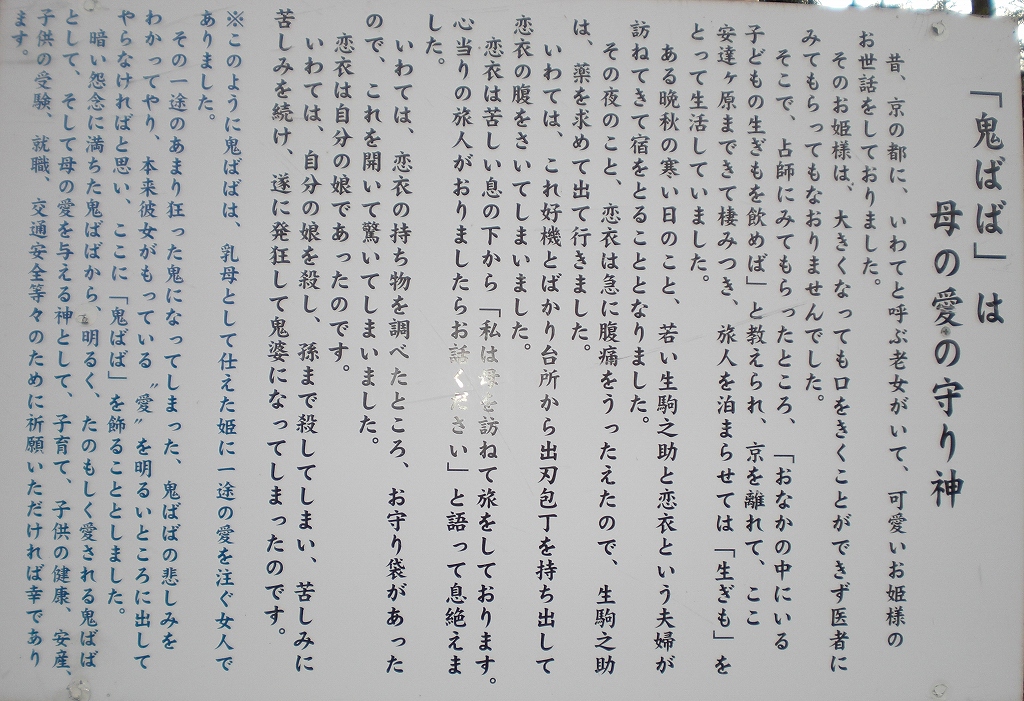 「鬼ばば」は
母の愛の守り神
昔、京の都に、いわてと呼ぶ老女がいて、可愛いお姫様の
お世話をしておりました。
そのお姫様は、大きくなっても口をきくことができず医者に
みてもらってもなおりませんでした。
そこで、占師にみてもらったところ、「おなかの中にいる
子どもの生ぎもを飲めば」と教えられ、京を離れて、ここ
安達ヶ原まできて棲みつき、旅人を泊まらせては「生ぎも」を
とって生活していました。
ある晩秋の寒い日のこと、若い生駒之助と恋衣という夫婦が
訪ねてきて宿をとることとなりました。
その夜のこと、恋衣は急に腹痛をうったえたので、生駒之助
は、薬を求めて出て行きました。
いわては、これ好機とばかり台所から出刃包丁を持ち出して
恋衣の腹をさいてしまいました。
恋衣は苦しい息の下から「私は母を訪ねて旅をしております。
心当りの旅人がおりましたらお話ください」と語って息絶えま
した。
いわては、恋衣の持ち物を調べたところ、お守り袋があった
ので、これを開いて驚いてしまいました。
恋衣は自分の娘であったのです。
いわては、自分の娘を殺し、孫まで殺してしまい、苦しみに
苦しみを続け、遂に発狂して鬼婆になってしまったのです。
※このように鬼ばばは、乳母として仕えた姫に一途の愛を注ぐ女人で
ありました。
その一途のあまり狂った鬼になってしまった、鬼ばばの悲しみを
わかってやり、本来彼女がもっている〝愛〟を明るいところに出して
やらなければと思い、ここに「鬼ばば」を飾ることとしました。
暗い怨念に満ちた鬼ばばから、明るく、たのもしく愛される鬼ばば
として、そして母の愛を与える神として、子育て、子供の健康、安産、
子供の受験、就職、交通安全等々のために祈願いただければ幸であり
ます。